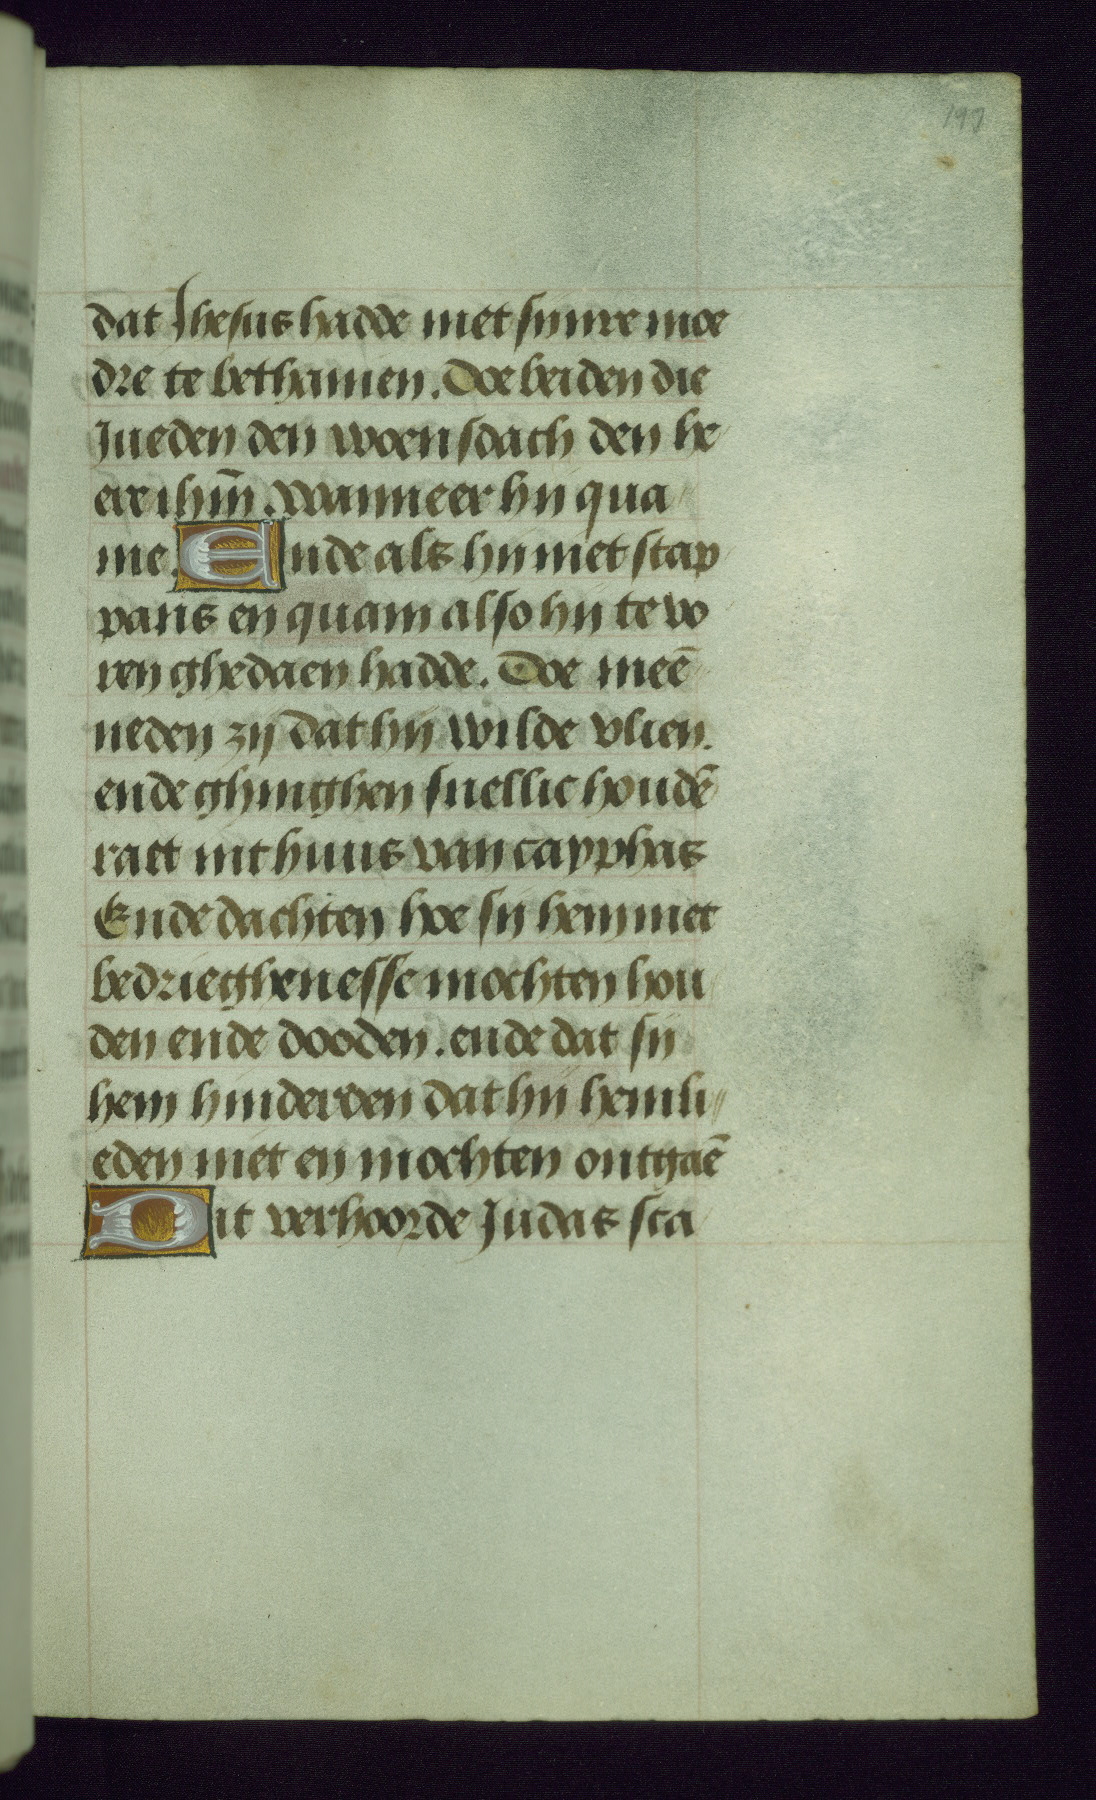 197
dat Jhesus hadde met sijnre moe
dre te bethanien. Doe beiden die
Jueden den woensdach den he
ere ihm̄. wanneer hij qua
me. Ende als hij niet scap
pans en quam also hij te vo
ren ghedaen hadde. Doe meē
neden zij dat hij wilde vlien.
ende ghinghen snellic houdē
raet int huus van cayphas
Ende dachten hoe sij hem met
bedrieghenesse mochten hou
den ende dooden. ende dat sij
hem hinderden dat hij hemli
eden niet en mochten ontgaē
Dit verhoorde Judas sca